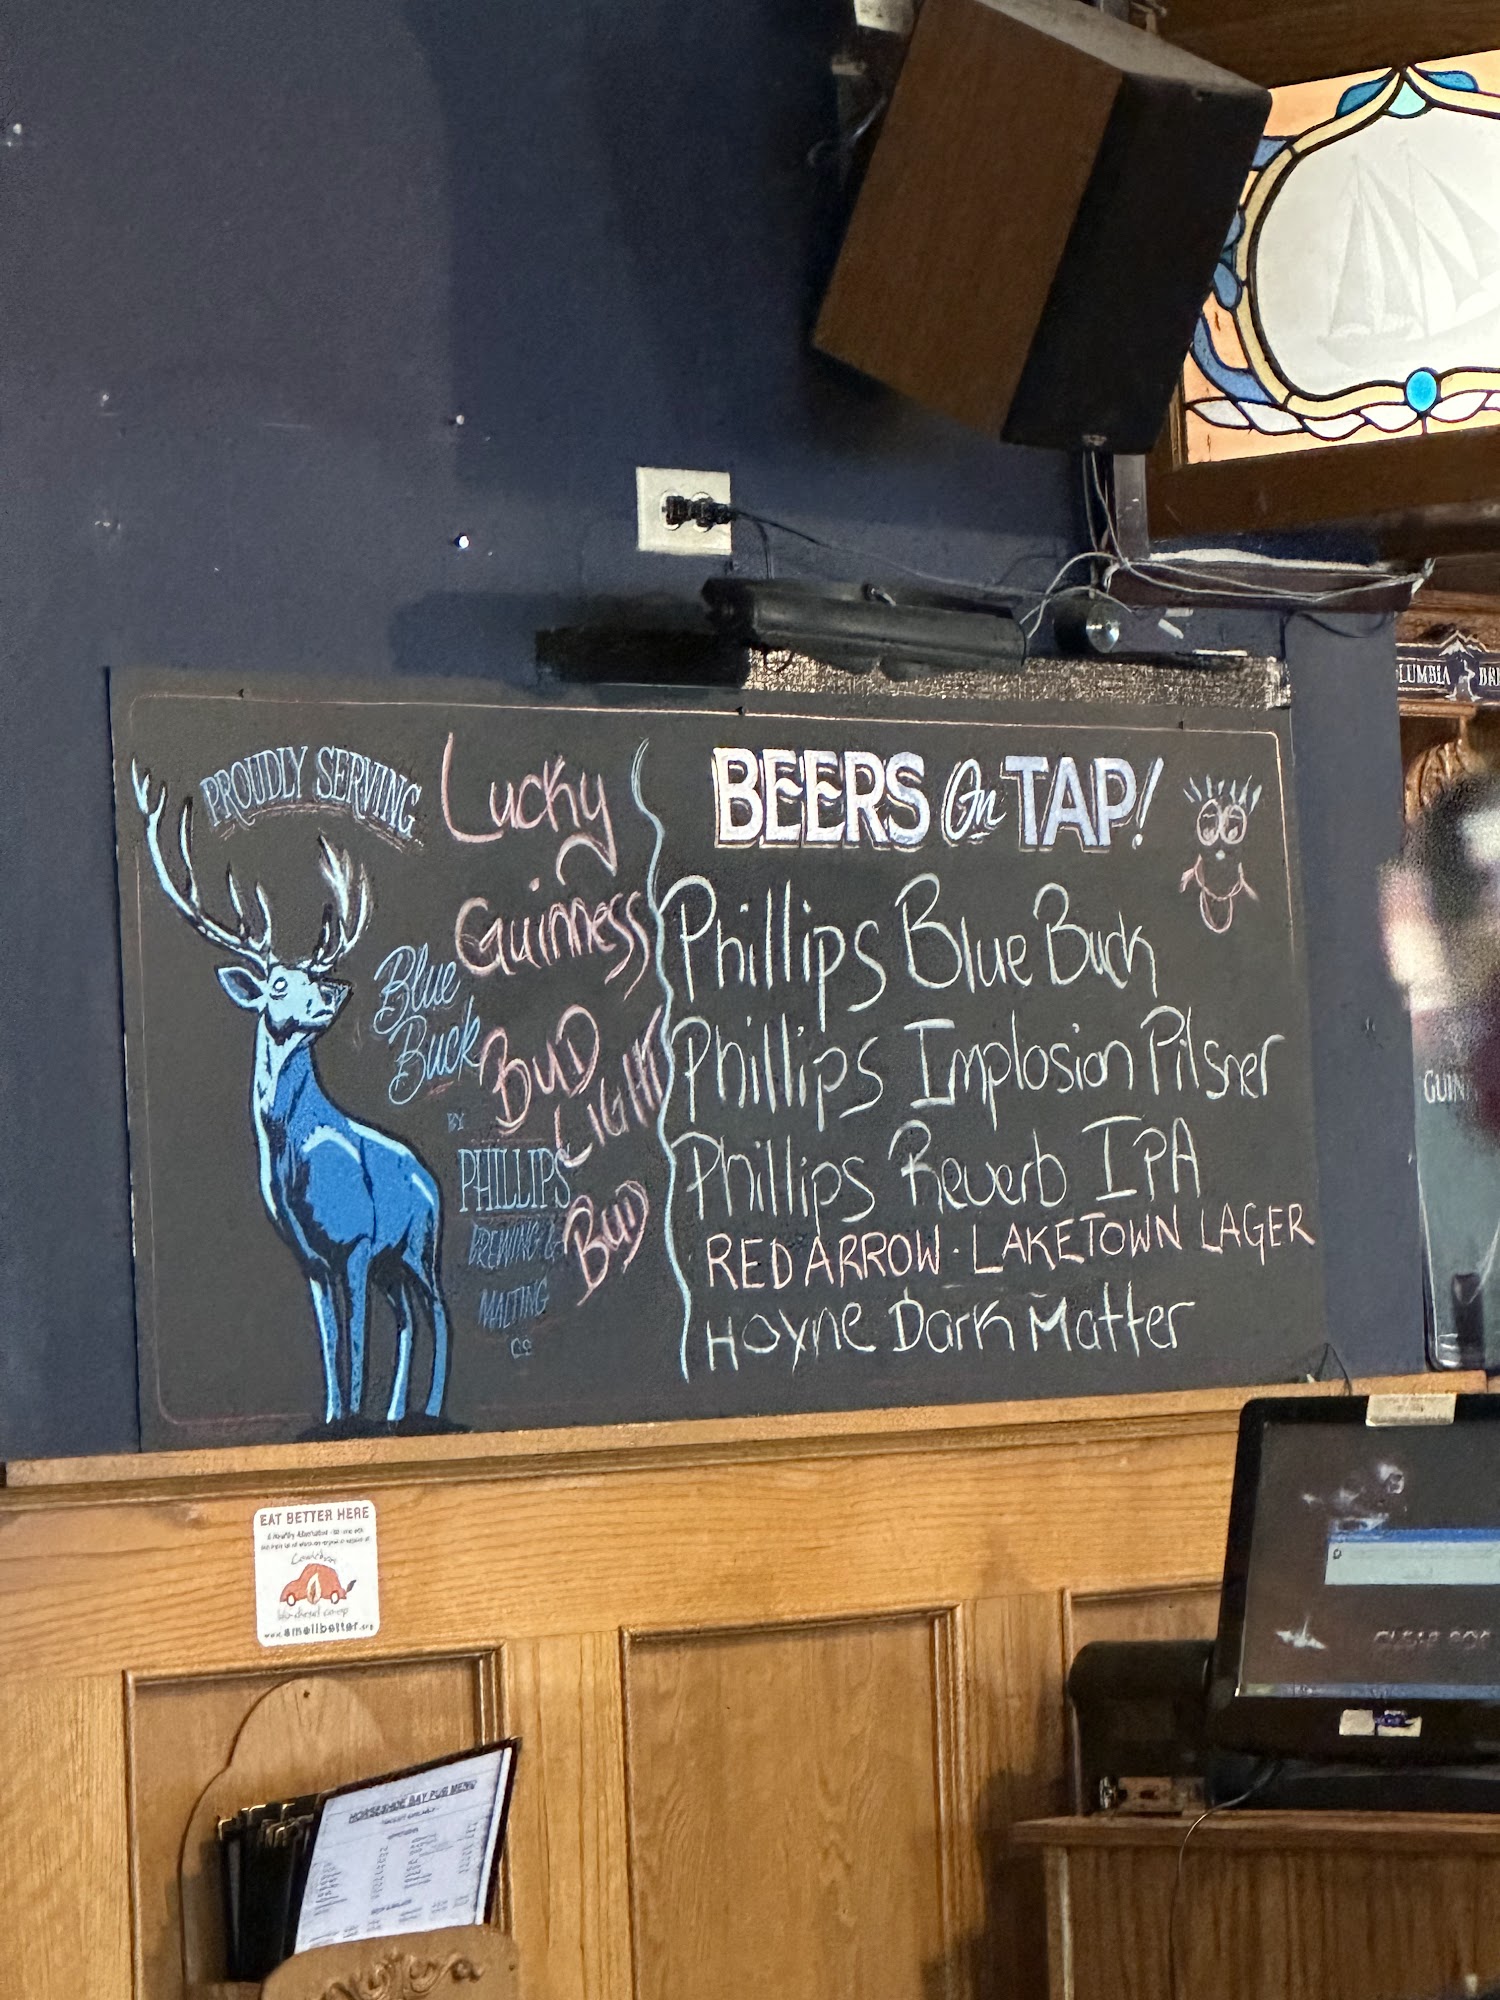 PROUDLY SERVING
Blue
Buck
BY
PHILLIPS
BREWING &
MALTING
CO
Lucky
Guinness
BUD
LIGHT
BUD
BEERS On TAP!
Phillips Blue Buck
Phillips Implosion Pilsner
Phillips Reverb IPA
RED ARROW · LAKETOWN LAGER
Hoyne Dark Matter
LUMBIA BRE
GUIN
EAT BETTER HERE
Cowichan
bio-diesel co-op
www.smellbetter.org
HORSESHOE BAY PUB MENU